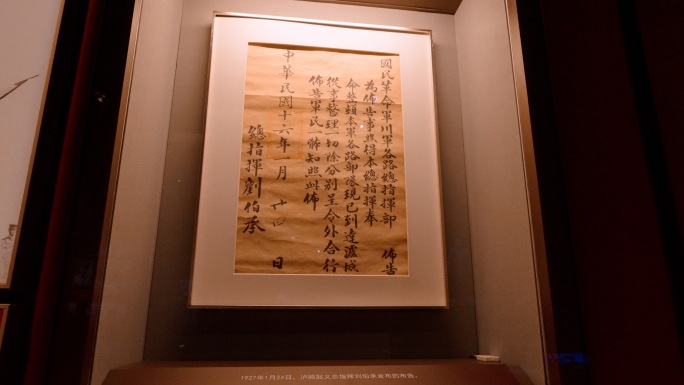 國民革命軍川軍各路總指揮部 佈告
為佈告事照得本總指揮奉
令整頓本軍各路部隊現已到達瀘城
從事整理一切除分別呈令外合行
佈告軍民一體知照此佈
中華民國十六年一月 廿四 日
總指揮劉伯承
1927年1月24日，泸顺起义总指挥刘伯承发布的布告。